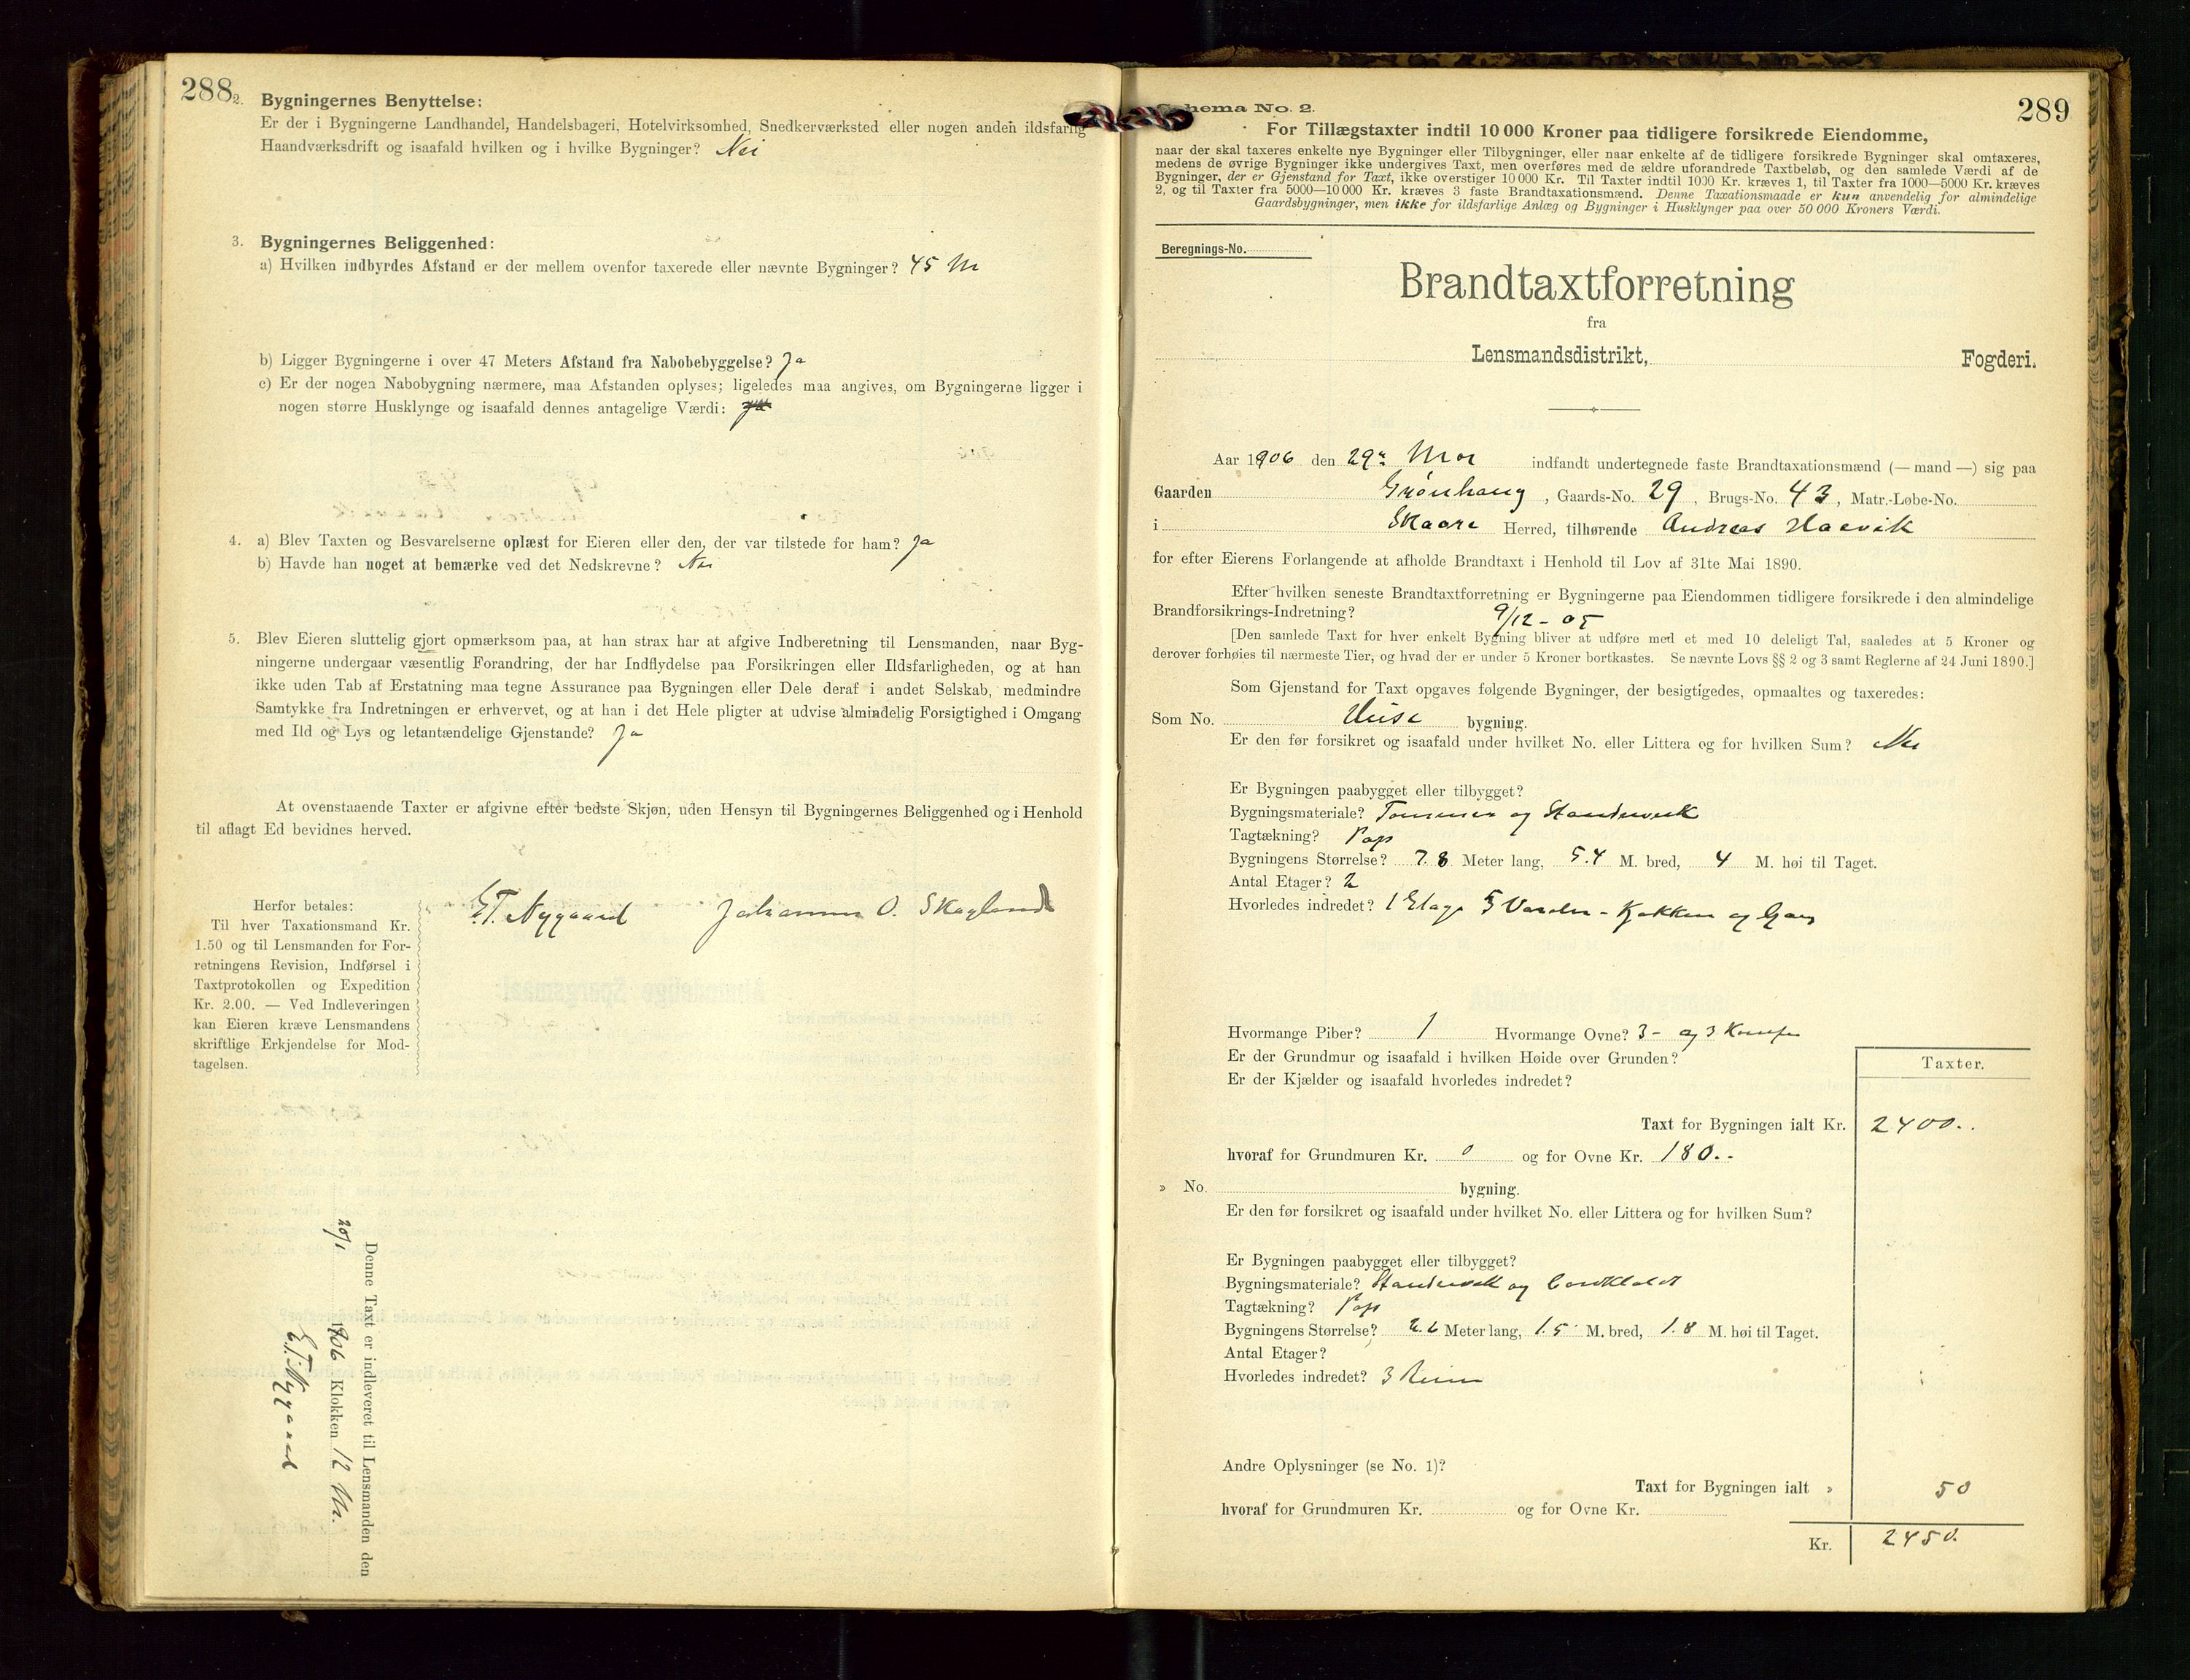 288
2. Bygningernes Benyttelse:
Er der i Bygningerne Landhandel, Handelsbageri, Hotelvirksomhed, Snedkerværksted eller nogen anden ildsfarlig
Haandværksdrift og isaafald hvilken og i hvilke Bygninger? Nei
3. Bygningernes Beliggenhed:
a) Hvilken indbyrdes Afstand er der mellem ovenfor taxerede eller nævnte Bygninger? 45 M
b) Ligger Bygningerne i over 47 Meters Afstand fra Nabobebyggelse? Ja
c) Er der nogen Nabobygning nærmere, maa Afstanden oplyses; ligeledes maa angives, om Bygningerne ligger i
nogen større Husklynge og isaafald dennes antagelige Værdi:
4. a) Blev Taxten og Besvarelserne oplæst for Eieren eller den, der var tilstede for ham? Ja
b) Havde han noget at bemærke ved det Nedskrevne? Nei
5. Blev Eieren sluttelig gjort opmærksom paa, at han strax har at afgive Indberetning til Lensmanden, naar Byg-
ningerne undergaar væsentlig Forandring, der har Indflydelse paa Forsikringen eller Ildsfarligheden, og at han
ikke uden Tab af Erstatning maa tegne Assurance paa Bygningen eller Dele deraf i andet Selskab, medmindre
Samtykke fra Indretningen er erhvervet, og at han i det Hele pligter at udvise almindelig Forsigtighed i Omgang
med Ild og Lys og letantændelige Gjenstande? Ja
At ovenstaaende Taxter er afgivne efter bedste Skjøn, uden Hensyn til Bygningernes Beliggenhed og i Henhold
til aflagt Ed bevidnes herved.
E.T. Nygaard Johannes O. Skogland
Herfor betales:
Til hver Taxationsmand Kr.
1.50 og til Lensmanden for For-
retningens Revision, Indførsel i
Taxtprotokollen og Expedition
Kr. 2.00. — Ved Indleveringen
kan Eieren kræve Lensmandens
skriftlige Erkjendelse for Mod-
tagelsen.
Denne Taxt er indleveret til Lensmanden den
20/1 1906 Klokken 12 M.
E.T. Nygaard
289
Schema No. 2.
For Tillægstaxter indtil 10 000 Kroner paa tidligere forsikrede Eiendomme,
naar der skal taxeres enkelte nye Bygninger eller Tilbygninger, eller naar enkelte af de tidligere forsikrede Bygninger skal omtaxeres,
medens de øvrige Bygninger ikke undergives Taxt, men overføres med de ældre uforandrede Taxtbeløb, og den samlede Værdi af de
Bygninger, der er Gjenstand for Taxt, ikke overstiger 10 000 Kr. Til Taxter indtil 1000 Kr. kræves 1, til Taxter fra 1000—5000 Kr. kræves
2, og til Taxter fra 5000—10 000 Kr. kræves 3 faste Brandtaxationsmænd. Denne Taxationsmaade er kun anvendelig for almindelige
Gaardsbygninger, men ikke for ildsfarlige Anlæg og Bygninger i Husklynger paa over 50 000 Kroners Værdi.
Beregnings-No.
Brandtaxtforretning
fra
Lensmandsdistrikt, Fogderi.
Aar 1906 den 29de indfandt undertegnede faste Brandtaxationsmænd (— mand —) sig paa
Gaarden Grønhaug, Gaards-No. 29, Brugs-No. 43, Matr.-Løbe-No.
i Skaare Herred, tilhørende Andreas Haavik
for efter Eierens Forlangende at afholde Brandtaxt i Henhold til Lov af 31te Mai 1890.
Efter hvilken seneste Brandtaxtforretning er Bygningerne paa Eiendommen tidligere forsikrede i den almindelige
Brandforsikrings-Indretning? 9/12 - 05
[Den samlede Taxt for hver enkelt Bygning bliver at udføre med et med 10 deleligt Tal, saaledes at 5 Kroner og
derover forhøies til nærmeste Tier, og hvad der er under 5 Kroner bortkastes. Se nævnte Lovs §§ 2 og 3 samt Reglerne af 24 Juni 1890.]
Som Gjenstand for Taxt opgaves følgende Bygninger, der besigtigedes, opmaaltes og taxeredes:
Som No. bygning.
Er den før forsikret og isaafald under hvilket No. eller Littera og for hvilken Sum? Nei
Er Bygningen paabygget eller tilbygget?
Bygningsmateriale? Tømmer og Standerverk
Tagtækning? Pap
Bygningens Størrelse? 7.8 Meter lang, 5.4 M. bred, 4 M. høi til Taget.
Antal Etager? 2
Hvorledes indredet? 1 Etage 3 Værelser - Kjøkken og Gang
Hvormange Piber? 1 Hvormange Ovne? 3 - og 3 Komfur
Er der Grundmur og isaafald i hvilken Høide over Grunden?
Er der Kjælder og isaafald hvorledes indredet?
Taxter.
Taxt for Bygningen ialt Kr. 2400..
hvoraf for Grundmuren Kr. 0 og for Ovne Kr. 180.-
» No. bygning.
Er den før forsikret og isaafald under hvilket No. eller Littera og for hvilken Sum?
Er Bygningen paabygget eller tilbygget?
Bygningsmateriale? Standerverk og Bordklædt
Tagtækning? Pap
Bygningens Størrelse? 2.2 Meter lang, 1.5 M. bred, 1.8 M. høi til Taget.
Antal Etager?
Hvorledes indredet? 3 Rum
Andre Oplysninger (se No. 1)?
Taxt for Bygningen ialt » 50
hvoraf for Grundmuren Kr. og for Ovne Kr.
Kr. 2450.